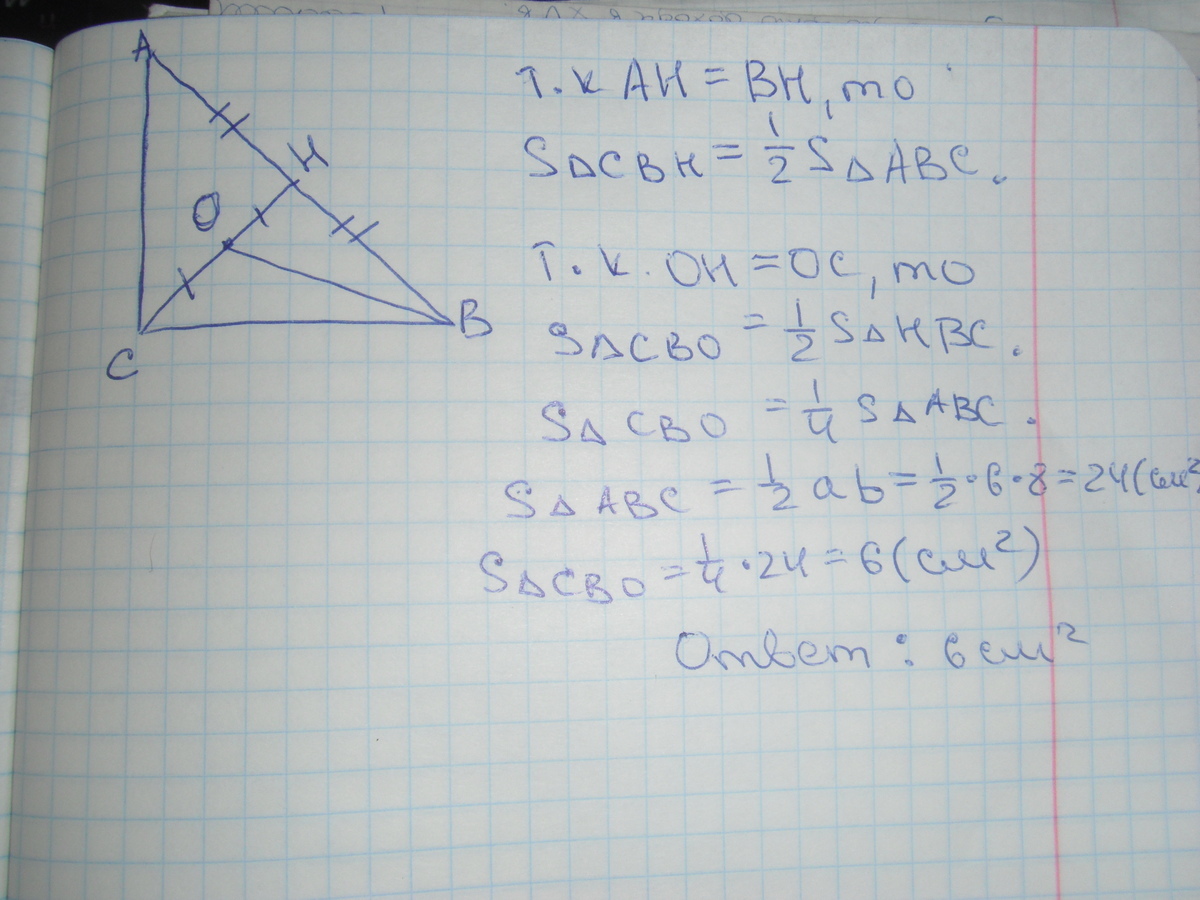 A
H
O
B
C
т.к AH = BH, то
S△CBH = 1/2 S△ABC.
т.к. OH = OC, то
S△CBO = 1/2 S△HBC.
S△CBO = 1/4 S△ABC.
S△ABC = 1/2 ab = 1/2 · 6 · 8 = 24 (см²)
S△CBO = 1/4 · 24 = 6 (см²)
Ответ: 6 см²